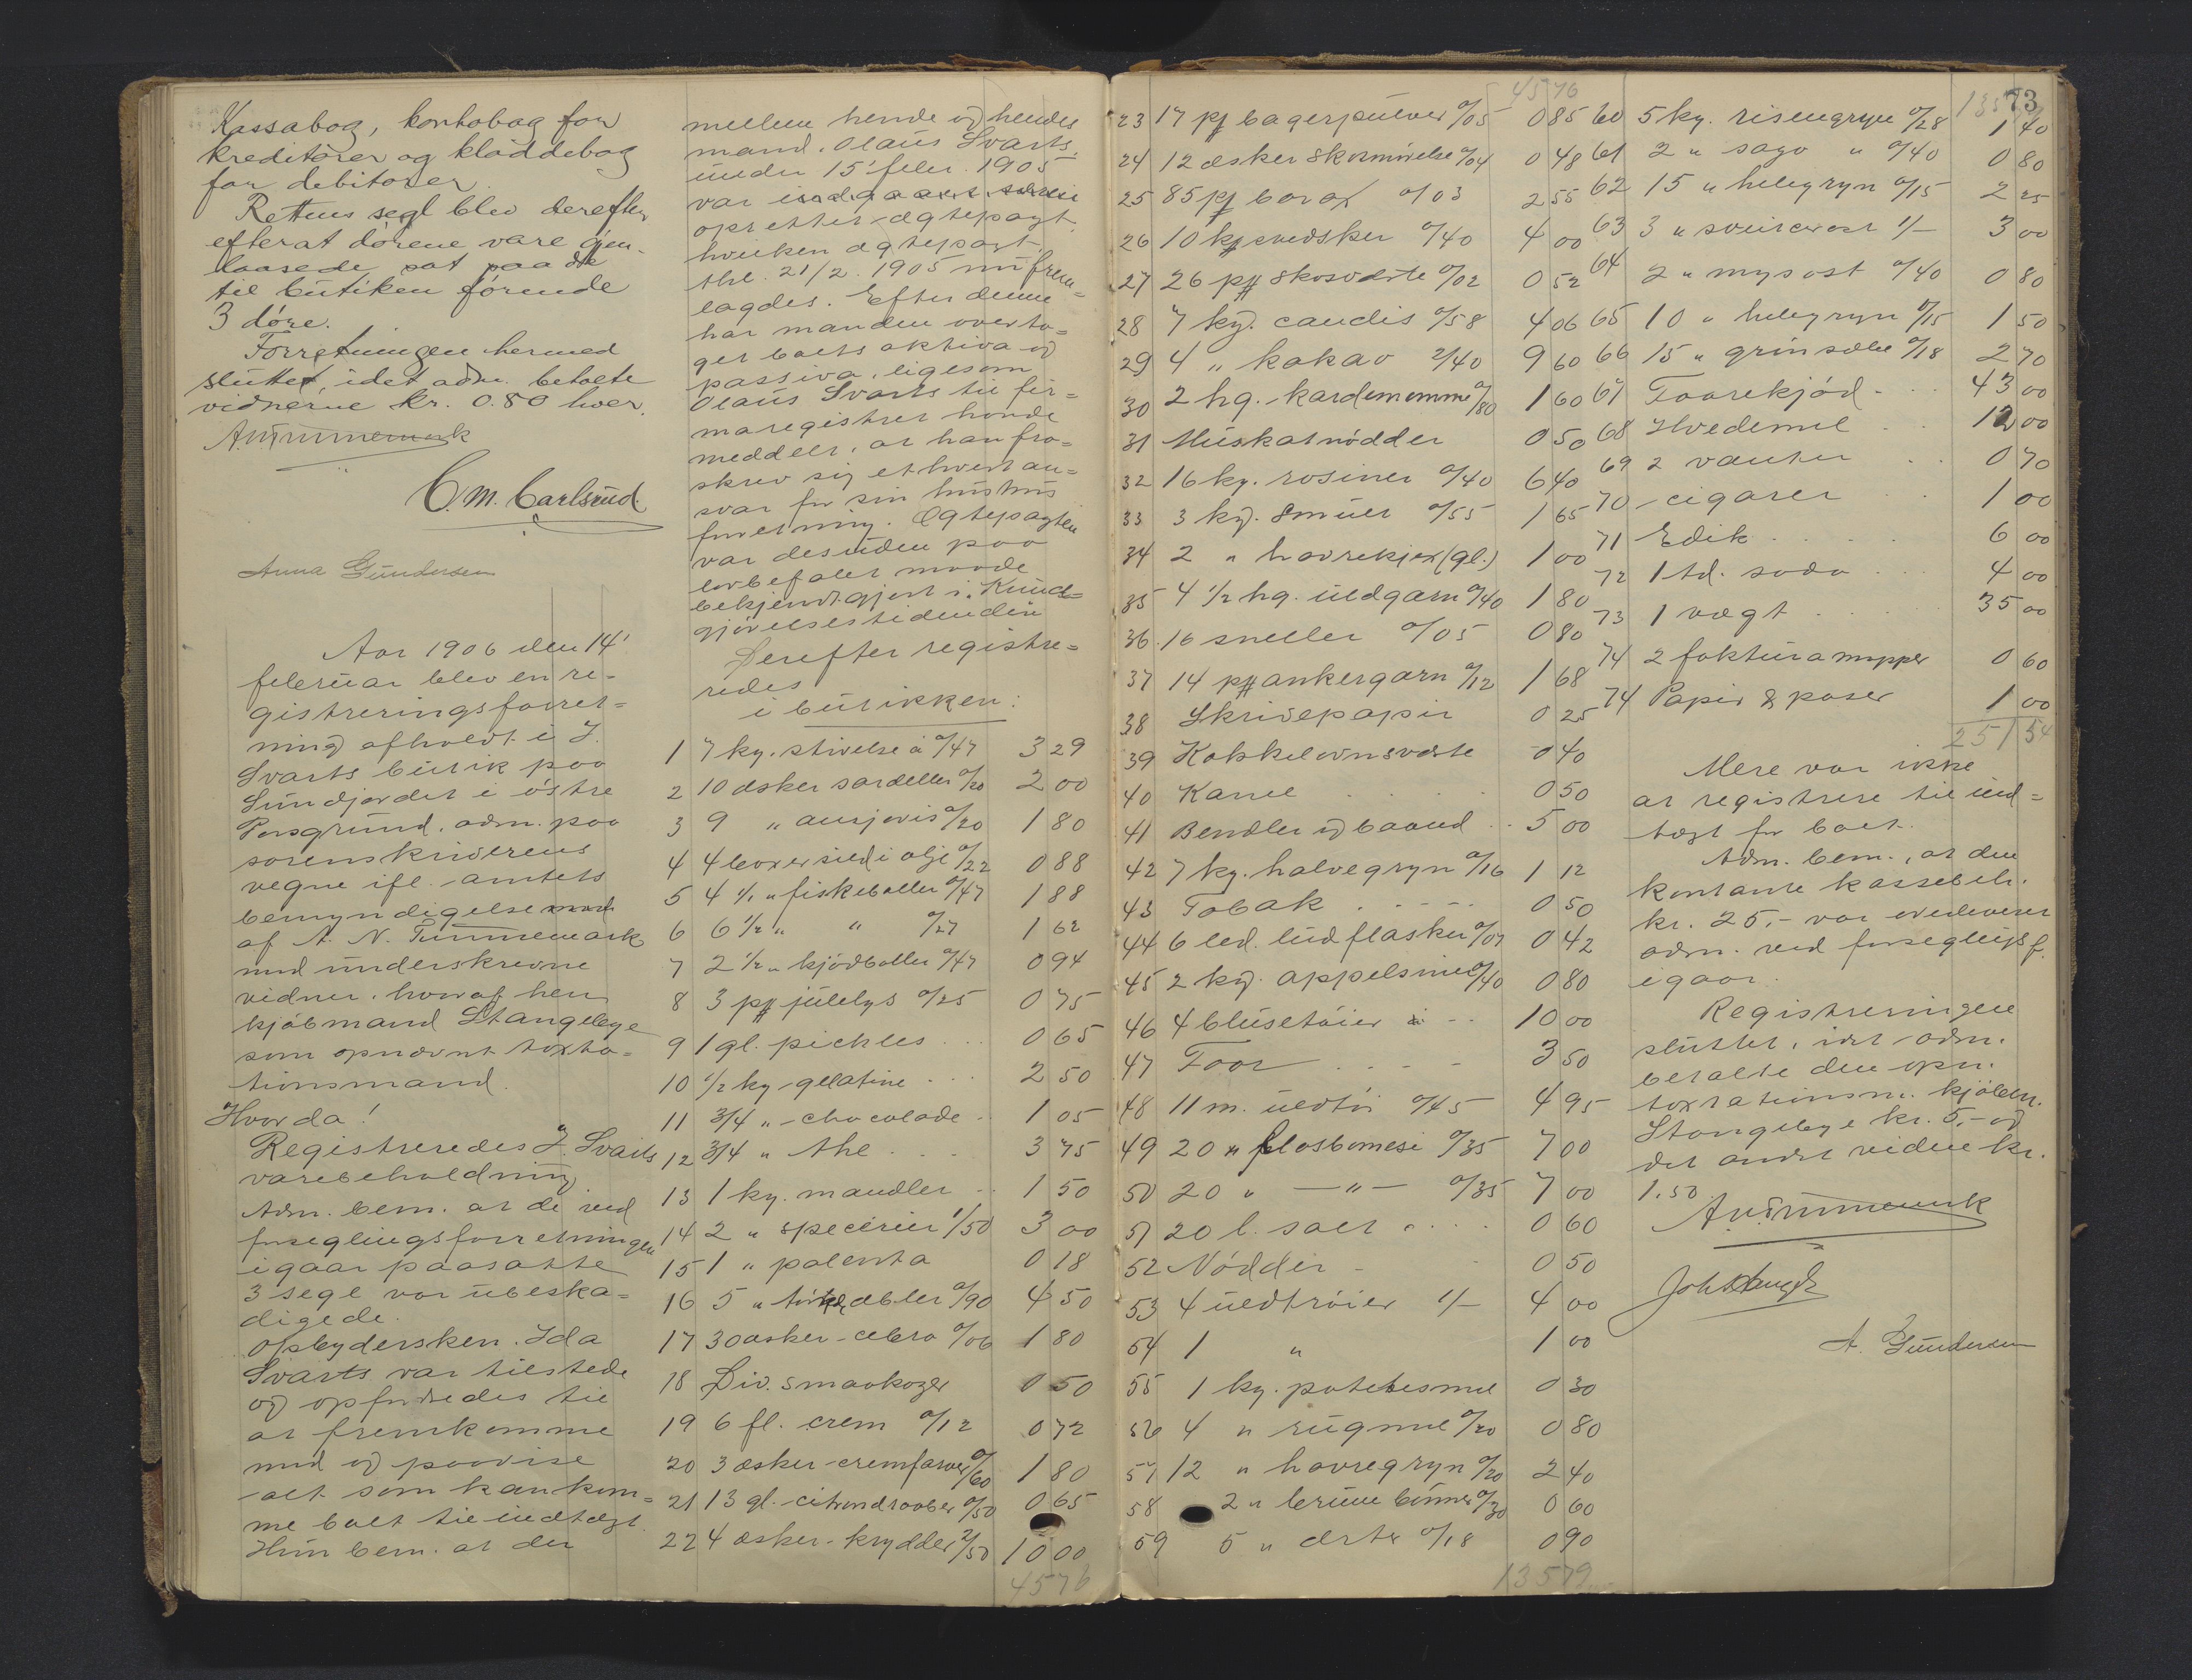 Kassabog, kontobog for
kreditorer og kladdebog
for debitorer.
Rettens segl blev derefter
efterat dørene vare gjen-
laasede sat paa de
til butiken førende
3 døre.
Forretningen hermed
sluttet, idet adm. betalte
vidnerne kr. 0.80 hver.
C. M. Carlsrud.
Anna Gundersen
Aar 1906 den 14'
februar blev en re-
gistreringsforret=
ning afholdt i I.
Svarts butik paa
Sundjordet i østre
Porsgrund, adm. paa
sorenskriverens
vegne ifl. amtets
bemyndigelse
af A. N. Tummemark
med underskrevne
vidner, hvoraf herr
kjøbmand Stangebye
som opnævnt taxta=
tionsmand.
Hvorda!
Registreredes I. Svarts
varebeholdning
Adm. bem. at de ved
forseglingsforretningen
igaar paasatte
3 segl var ubeska=
digede.
Opbydersken Ida
Svarts var tilstede
og opfordredes til
at fremkomme
med og paavise
alt som kan kom=
me boet til indtægt.
Hun bem. at der
mellem hende og hendes
mand, Olaus Svarts,
under 15' febr. 1905
var
oprettet ægtepagt,
hvilken ægtepagt,
thl. 21/2 1905 nu frem=
lagdes. Efter denne
har manden overta=
get boets aktiva og
passiva, ligesom
Olaus Svarts til fir=
maregistret havde
meddelt, at han fra=
skrev sig ethvert an=
svar for sin hustrus
forretning. Ægtepagten
var desuden paa
lovbefalet maade
bekjendtgjort i Kund=
gjørelsestidenden
Derefter registre=
redes
i butikken:
1 7 kg. stivelse à 0/47 3 29
2 10 æsker sardeller 0/20 2 00
3 9 " ansjovis 0/20 1 80
4 4 boxer sild i olje 0/22 0 88
5 4 1/1 " fiskeboller 0/47 1 88
6 6 1/2 " " 0/27 1 62
7 2 1/2 " kjødboller 0/47 0 94
8 3 pk julelys 0/25 0 75
9 1 gl. pickles ... 0 65
10 1/2 kg gelatine ... 2 50
11 3/4 " chocolade .. 1 05
12 3/4 " the .... 3 75
13 1 kg. mandler .. 1 50
14 2 " specerier 1/50 3 00
15 1 " polenta 0 18
16 5 " æbler 0/90 4 50
17 30 æsker cebra 0/06 1 80
18 Div. smaakager 0 50
19 6 fl. crem 0/12 0 72
20 3 æsker cremfarver 0/60 1 80
21 13 gl. citrondraaber 0/50 0 65
22 4 æsker krydder 2/50 10 00
45 76
45 76
23 17 pk bagerpulver 0/05 0 85
24 12 æsker skosmørelse 0/04 0 48
25 85 pk borax 0/03 2 55
26 10 kg svedsker 0/40 4 00
27 26 pk skosværte 0/02 0 52
28 7 kg. candis 0/58 4 06
29 4 " kakao 2/40 9 60
30 2 hg. kardemomme 0/80 1 60
31 Muskatnødder 0 50
32 16 kg. rosiner 0/40 6 40
33 3 kg. smuler 0/55 1 65
34 2 " havrekjex (gl.) 1 00
35 4 1/2 hg. uldgarn 0/40 1 80
36 16 sneller 0/05 0 80
37 14 pk ankergarn 0/12 1 68
38 Skrivepapir 0 25
39 Kakkelovnsværte 0 40
40 Kanel .... 0 50
41 Bendler og baand .. 5 00
42 7 kg. halvegryn 0/16 1 12
43 Tobak ..... 0 50
44 6 led. ludflasker 0/07 0 42
45 2 kg. appelsiner 0/40 0 80
46 4 blusetøier .. 10 00
47 Toar .... 3 50
48 11 m. uldtøi 0/45 4 95
49 20 " flosbomesi 0/35 7 00
50 20 " — " — 0/35 7 00
51 20 l. salt .... 0 60
52 Nødder 0 50
53 4 uldtrøier 1/— 4 00
54 1 " 1 00
55 1 kg. potetesmel 0 30
56 4 " rugmel 0/20 0 80
57 12 " havregryn 0/20 2 40
58 2 " brune bønner 0/30 0 60
59 5 " ærter 0/18 0 90
135 79
73
60 5 kg. risengryn 0/28 1 40
61 2 " sago " 0/40 0 80
62 15 " helegryn 0/15 2 25
63 3 " sveitserost 1/— 3 00
64 2 " mysost 0/40 0 80
65 10 " helegryn 0/15 1 50
66 15 " grønsæbe 0/18 2 70
67 Faarekjød . . . 43 00
68 Hvedemel . . 12 00
69 2 vanter . . 0 70
70 cigarer . . 1 00
71 Edik . . . . . 6 00
72 1 td. soda . . . 4 00
73 1 vægt . . . . 35 00
74 2 fakturamapper 0 60
74 Papir & poser 1 00
251 54
Mere var ikke
at registrere til ind=
tægt for boet.
Adm. bem., at den
kontante kassebeh.
kr. 25,- var overleveret
adm. ved forseglingsf.
igaar.
Registreringen
sluttet, idet adm.
betalte den opn.
taxrationsm. kjøbm.
Stangebye kr. 5,- og
det andet vidne kr.
1.50.
A. Gundersen